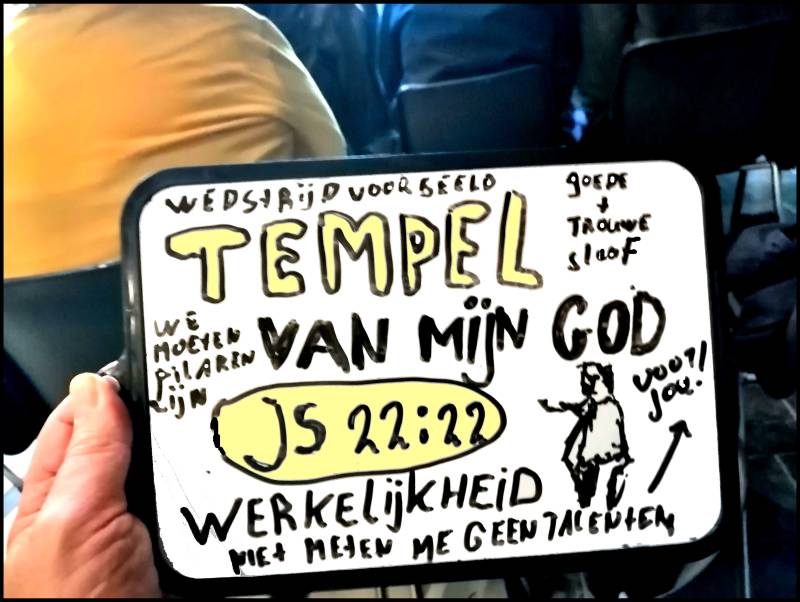 WEDSTRIJD VOORBEELD
TEMPEL
GOEDE
+
TROUWE
SLOOF
VAN MIJN GOD
WE
MOETEN
PILAREN
ZIJN
JS 22:22
VOOR
JOU!
WERKELIJKHEID
NIET METEN ME GEEN TALENTEN